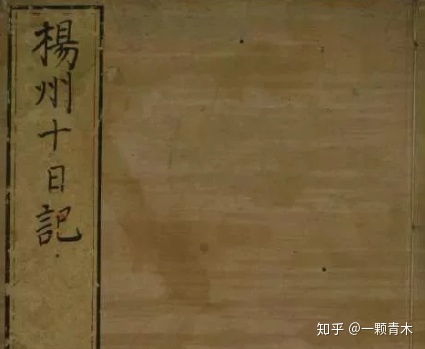 楊州十日記
知乎 @一颗青木